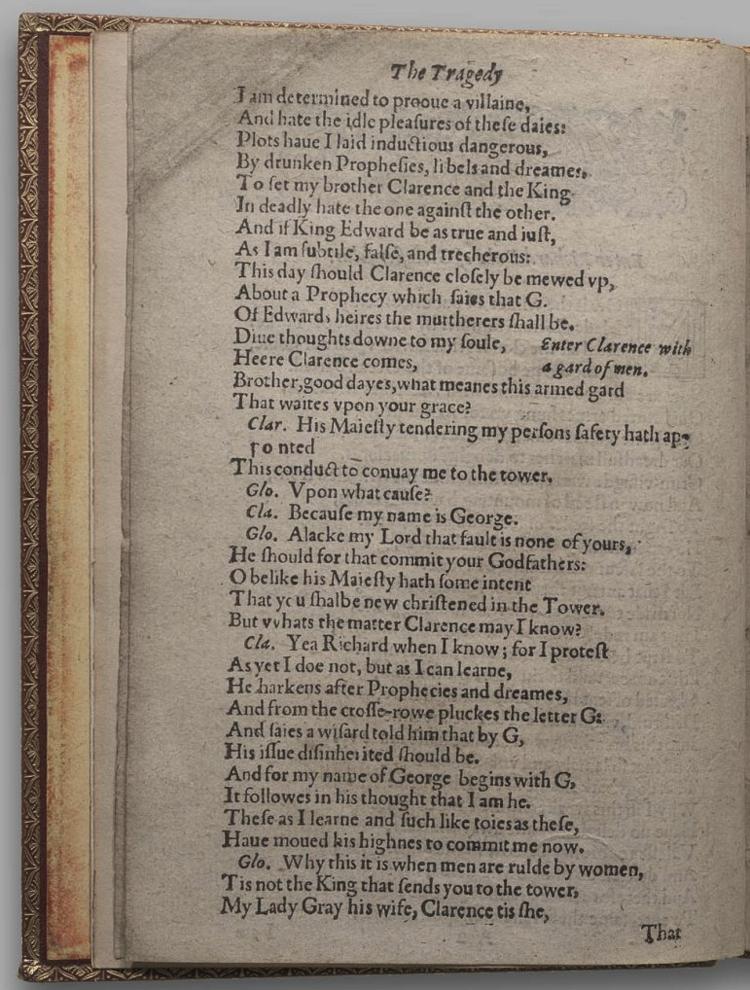 The Tragedy
I am determined to prooue a villaine,
And hate the idle pleaſures of theſe daies:
Plots haue I laid inductious dangerous,
By drunken Propheſies, libels and dreames,
To ſet my brother Clarence and the King
In deadly hate the one againſt the other.
And if King Edward be as true and iuſt,
As I am ſubtile, falſe, and trecherous:
This day ſhould Clarence cloſely be mewed vp,
About a Prophecy which ſaies that G.
Of Edwards heires the murtherers ſhall be.
Diue thoughts downe to my ſoule, Enter Clarence with
Heere Clarence comes, a gard of men.
Brother, good dayes, what meanes this armed gard
That waites vpon your grace?
Clar. His Maieſty tendering my perſons ſafety hath ap-
pointed
This conduct to conuay me to the tower.
Glo. Vpon what cauſe?
Cla. Becauſe my name is George.
Glo. Alacke my Lord that fault is none of yours,
He ſhould for that commit your Godfathers:
O belike his Maieſty hath ſome intent
That you ſhalbe new chriſtened in the Tower.
But vvhats the matter Clarence may I know?
Cla. Yea Richard when I know; for I proteſt
As yet I doe not, but as I can learne,
He harkens after Prophecies and dreames,
And from the croſſe-rowe pluckes the letter G:
And ſaies a wiſard told him that by G,
His iſſue diſinherited ſhould be.
And for my name of George begins with G,
It followes in his thought that I am he.
Theſe as I learne and ſuch like toies as theſe,
Haue moued his highnes to commit me now.
Glo. Why this it is when men are rulde by women,
Tis not the King that ſends you to the tower,
My Lady Gray his wife, Clarence tis ſhe,
That